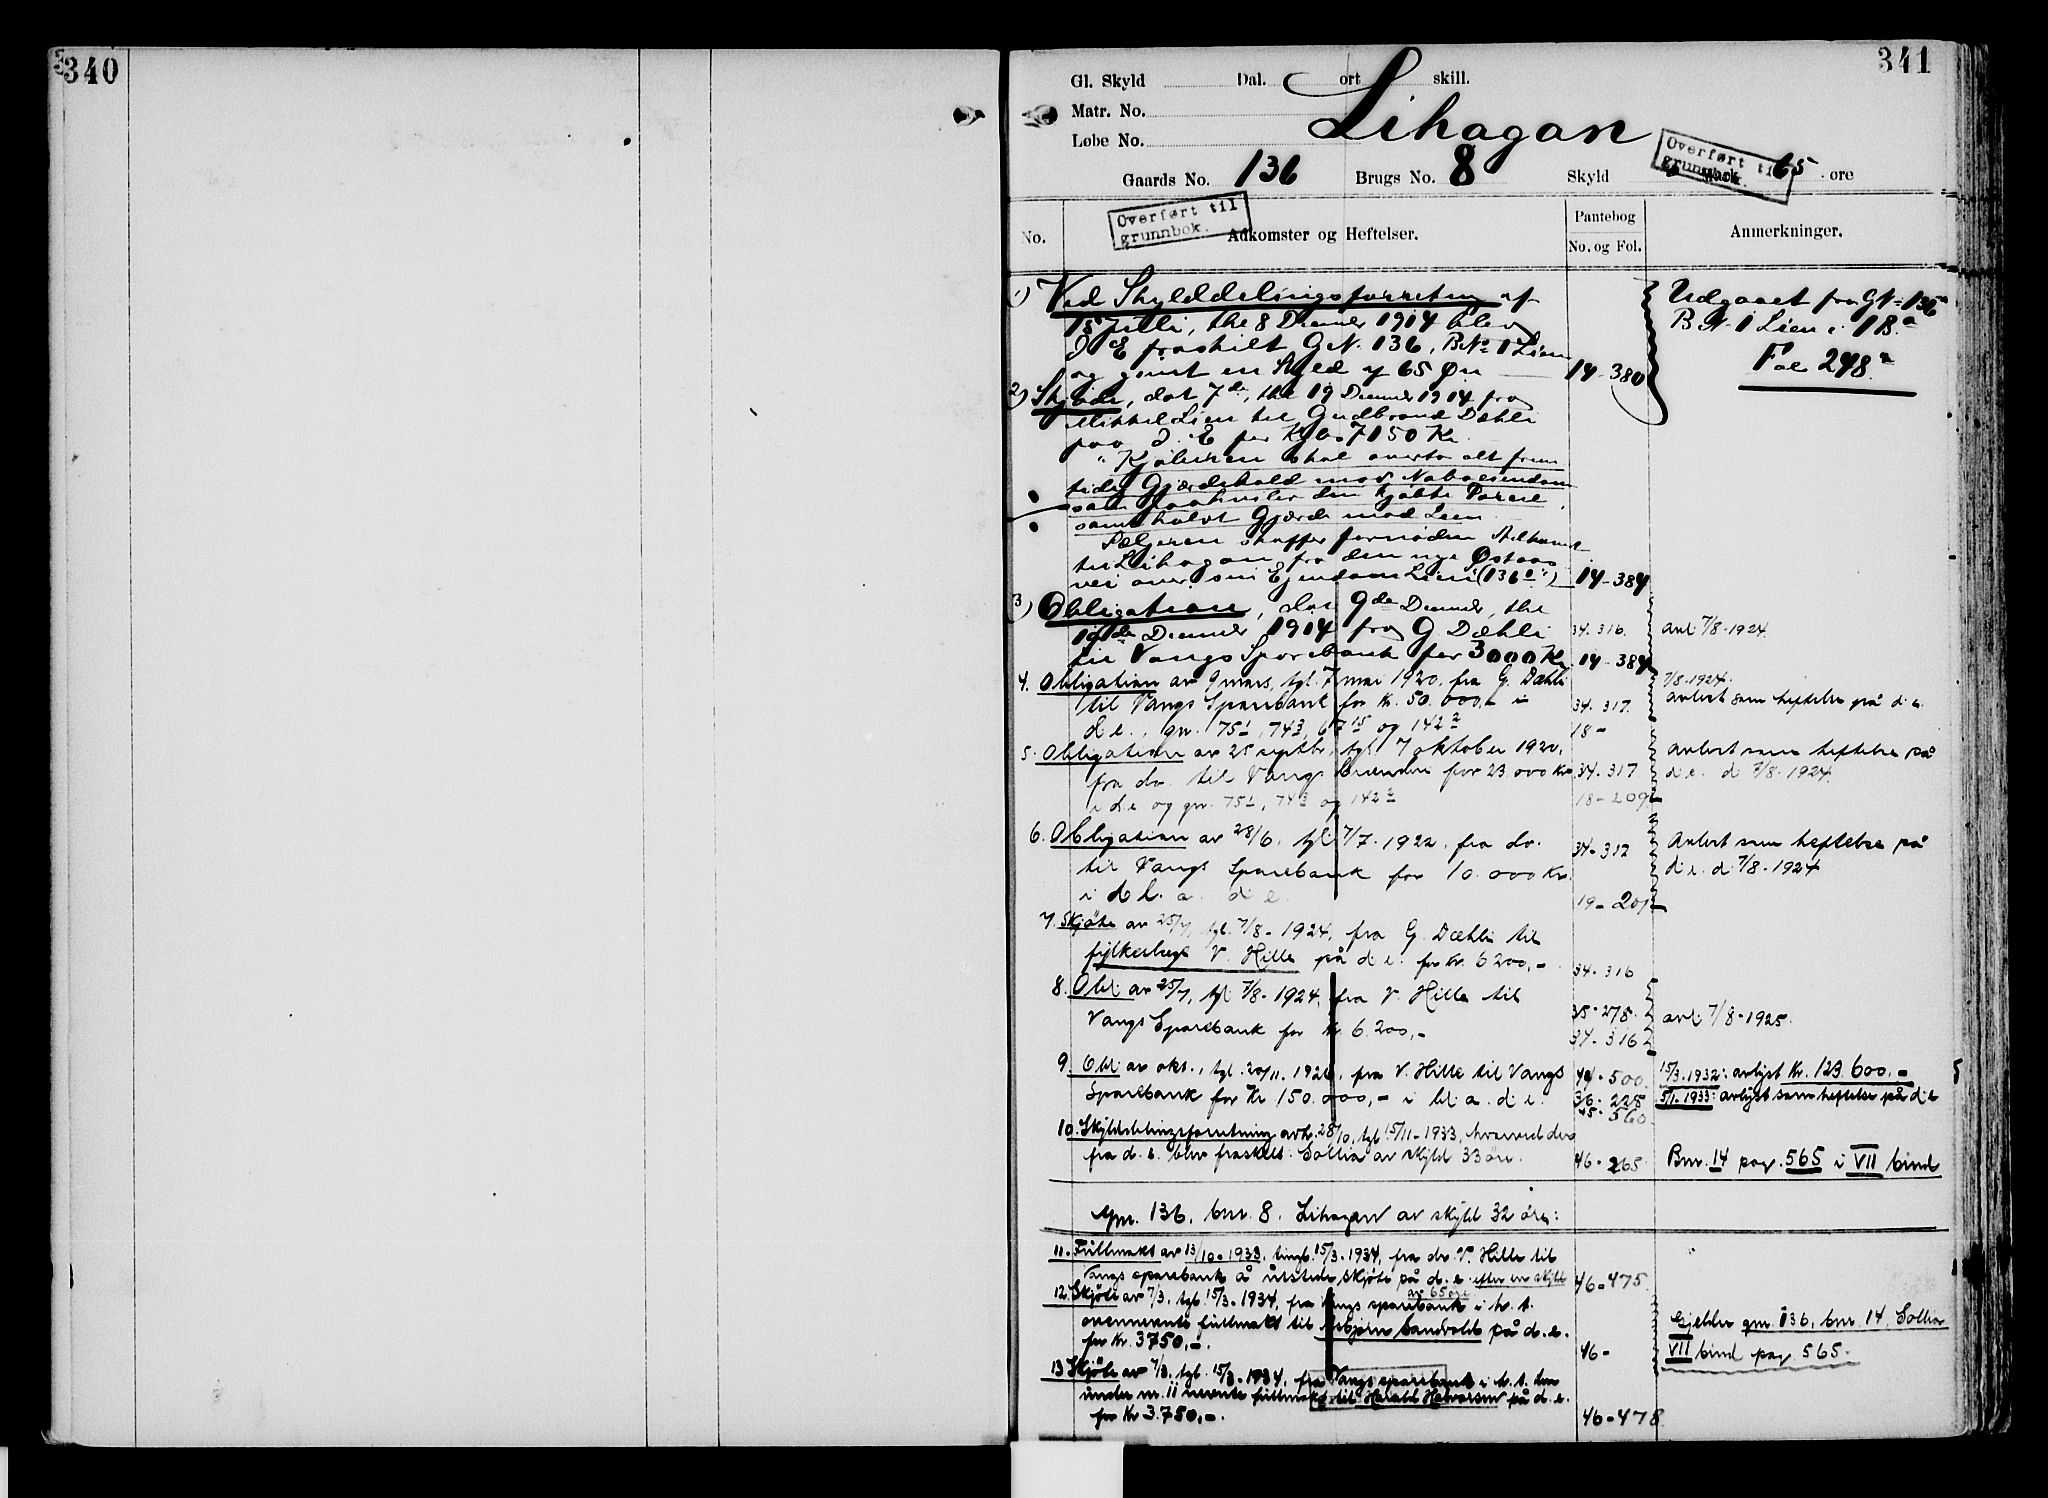 340
341
Gl. Skyld Dal. ort skill.
Matr. No.
Løbe No.
Lihagan
Gaards No. 136 Brugs No. 8 Skyld Mark 65 øre
Overført til
grunnbok.
Overført til
grunnbok.
No. Adkomster og Heftelser. Pantebog
No. og Fol. Anmerkninger.
1) Ved Skylddelingsforretning af
15 Juli, thl 8 Decembr 1914 blev
D. E. fraskilt G.N. 136, B.No 1 Lien
og givet en Skyld af 65 Øre 14-380
Udgaaet fra G.N. 136
B.N. 1 Lien i 1 B.
Fol 248.
2) Skjøde, dat 7de, thl 19 Decembr 1914 fra
Mikkel Lien til Gudbrand Dæhli
paa D. E. for Kjbs 7150 Kr.
"Kjøberen skal overta alt frem
tidig Gjærdehold mod Naboeiendom
som paahviler den kjøbte Parcel
samt halvt Gjærde mod Lien
Sælgeren skaffer fornøden Adkomst
til Lihagan fra den nye Østaas
vei over sin Eiendom Lien (136/1) 14-384
3) Obligation, dat 9de Decembr, thl
19de Decembr 1914 fra G Dæhli
til Vangs Sparebank for 3000 Kr. 14-384
34. 316. avl. 7/8-1924.
4. Obligation av 9 mars, tgl. 7 mai 1920. fra G. Dæhli
til Vangs Sparebank for kr. 50.000,- i
d.e., gn. 75/1, 74/3, 67/15 og 142/2
34. 317.
18-
7/8.1924.
avlest som heftelse på d.e.
5. Obligation av 25 septbr, tgl 7 oktober 1920,
fra do. til Vangs for 23 000 Kr
i d.e og gn. 75/1, 74/3 og 142/2
34. 317
18-209
avlest som heftelse på
d.e. d 7/8.1924.
6. Obligation av 28/6, tgl. 7/7.1922. fra do.
til Vangs Sparebank for 10.000 Kr.
i bl. a. d e.
34. 312
19-201
Avlest som heftelse på
d.e. d. 7/8-1924
7. Skjøte av 25/7, tgl. 7/8-1924, fra G. Dæhli til
fylkeslæge V. Hille på d.e. for kr. 6200,- 34. 316
8. Obl. av 25/7, tgl 7/8-1924, fra V. Hille til
Vangs Sparebank for Kr. 6.200,-
35-275.
34-316
avl. 7/8-1925.
9. Obl av okt., tgl. 20/11.1926, fra V. Hille til Vangs
Sparebank for Kr 150.000,- i bl. a. d e.
44-500.
36-228
45-560.
15/3.1932: avlyst Kr. 123.600.-
5/1-1933: avlyst som heftelse på d.e
10. Skylddelingsforretning avh. 28/10, tgl 15/11-1933, hvorved der
fra d.e. blev fraskilt: Sollia av skyld 33 øre. 46-265
Bnr. 14 pag. 565 i VII bind
Gnr. 136, bnr. 8. Lihagan av skyld 32 øre:
11. Fullmakt av 13/10-1933, tingl. 15/3-1934, fra dr. V. Hille til
Vangs sparebank å utstede skjöte på d. e. efter en skyld
av 65 øre 46-475
12. Skjöte av 7/3, tgl. 15/3-1934, fra Vangs sparebank i h. t.
ovennevnte fullmakt til Asbjørn Sandvold på d. e.
for Kr. 3750,-. 46-
Gjelder gnr. 136, bnr. 14. Sollia
VII bind pag. 565.
13. Skjöte av 7/3, tgl. 15/3-1934, fra Vangs sparebank i h. t. den
under nr. 11 nevnte fullmakt til Harald Halvorsen på d. e.
for Kr 3.750,-. 46-478